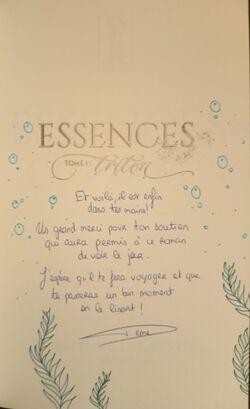 ESSENCES
TOME I: Triton
Et voilà, il est enfin
dans tes mains!
Un grand merci pour ton soutien
qui aura permis à ce roman
de voir le jour.
J'espère qu'il te fera voyager et que
tu passeras un bon moment
en le lisant!